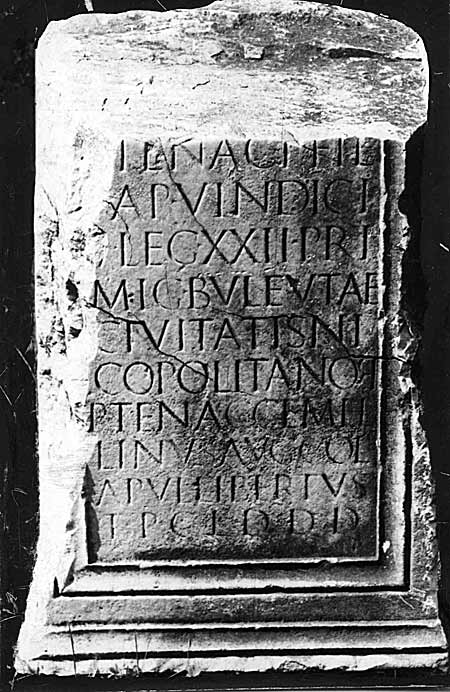 TENACI FIL
AP·VINDICI
LEG XXII·PRI
M·IG BVLEVTAE
CIVITATIS NI
COPOLITANOR
P TENAC GEMEL
LINVS AVG COL
APVL LIBERTVS
D D D